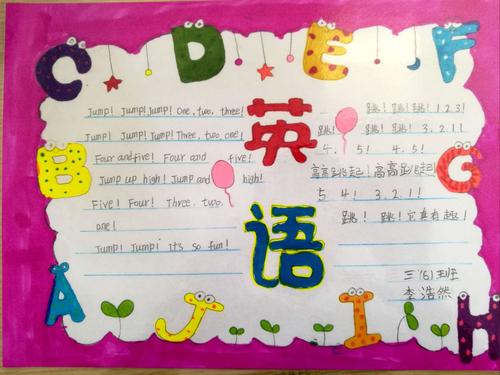 C D E F
B G
A J I H
英
语
Jump! Jump! Jump! One, two, three!
Jump! Jump! Jump! Three, two, one!
Four and five! Four and five!
Jump up high! Jump and high!
Five! Four! Three, two,
one!
Jump! Jump! it's so fun!
跳! 跳! 跳! 1.2.3!
跳! 跳! 跳! 3.2.1!
4. 5! 4. 5!
高高跳起! 高高跳起!
5 4! 3.2.1!
跳! 跳! 它真有趣!
三(6)班
李浩然